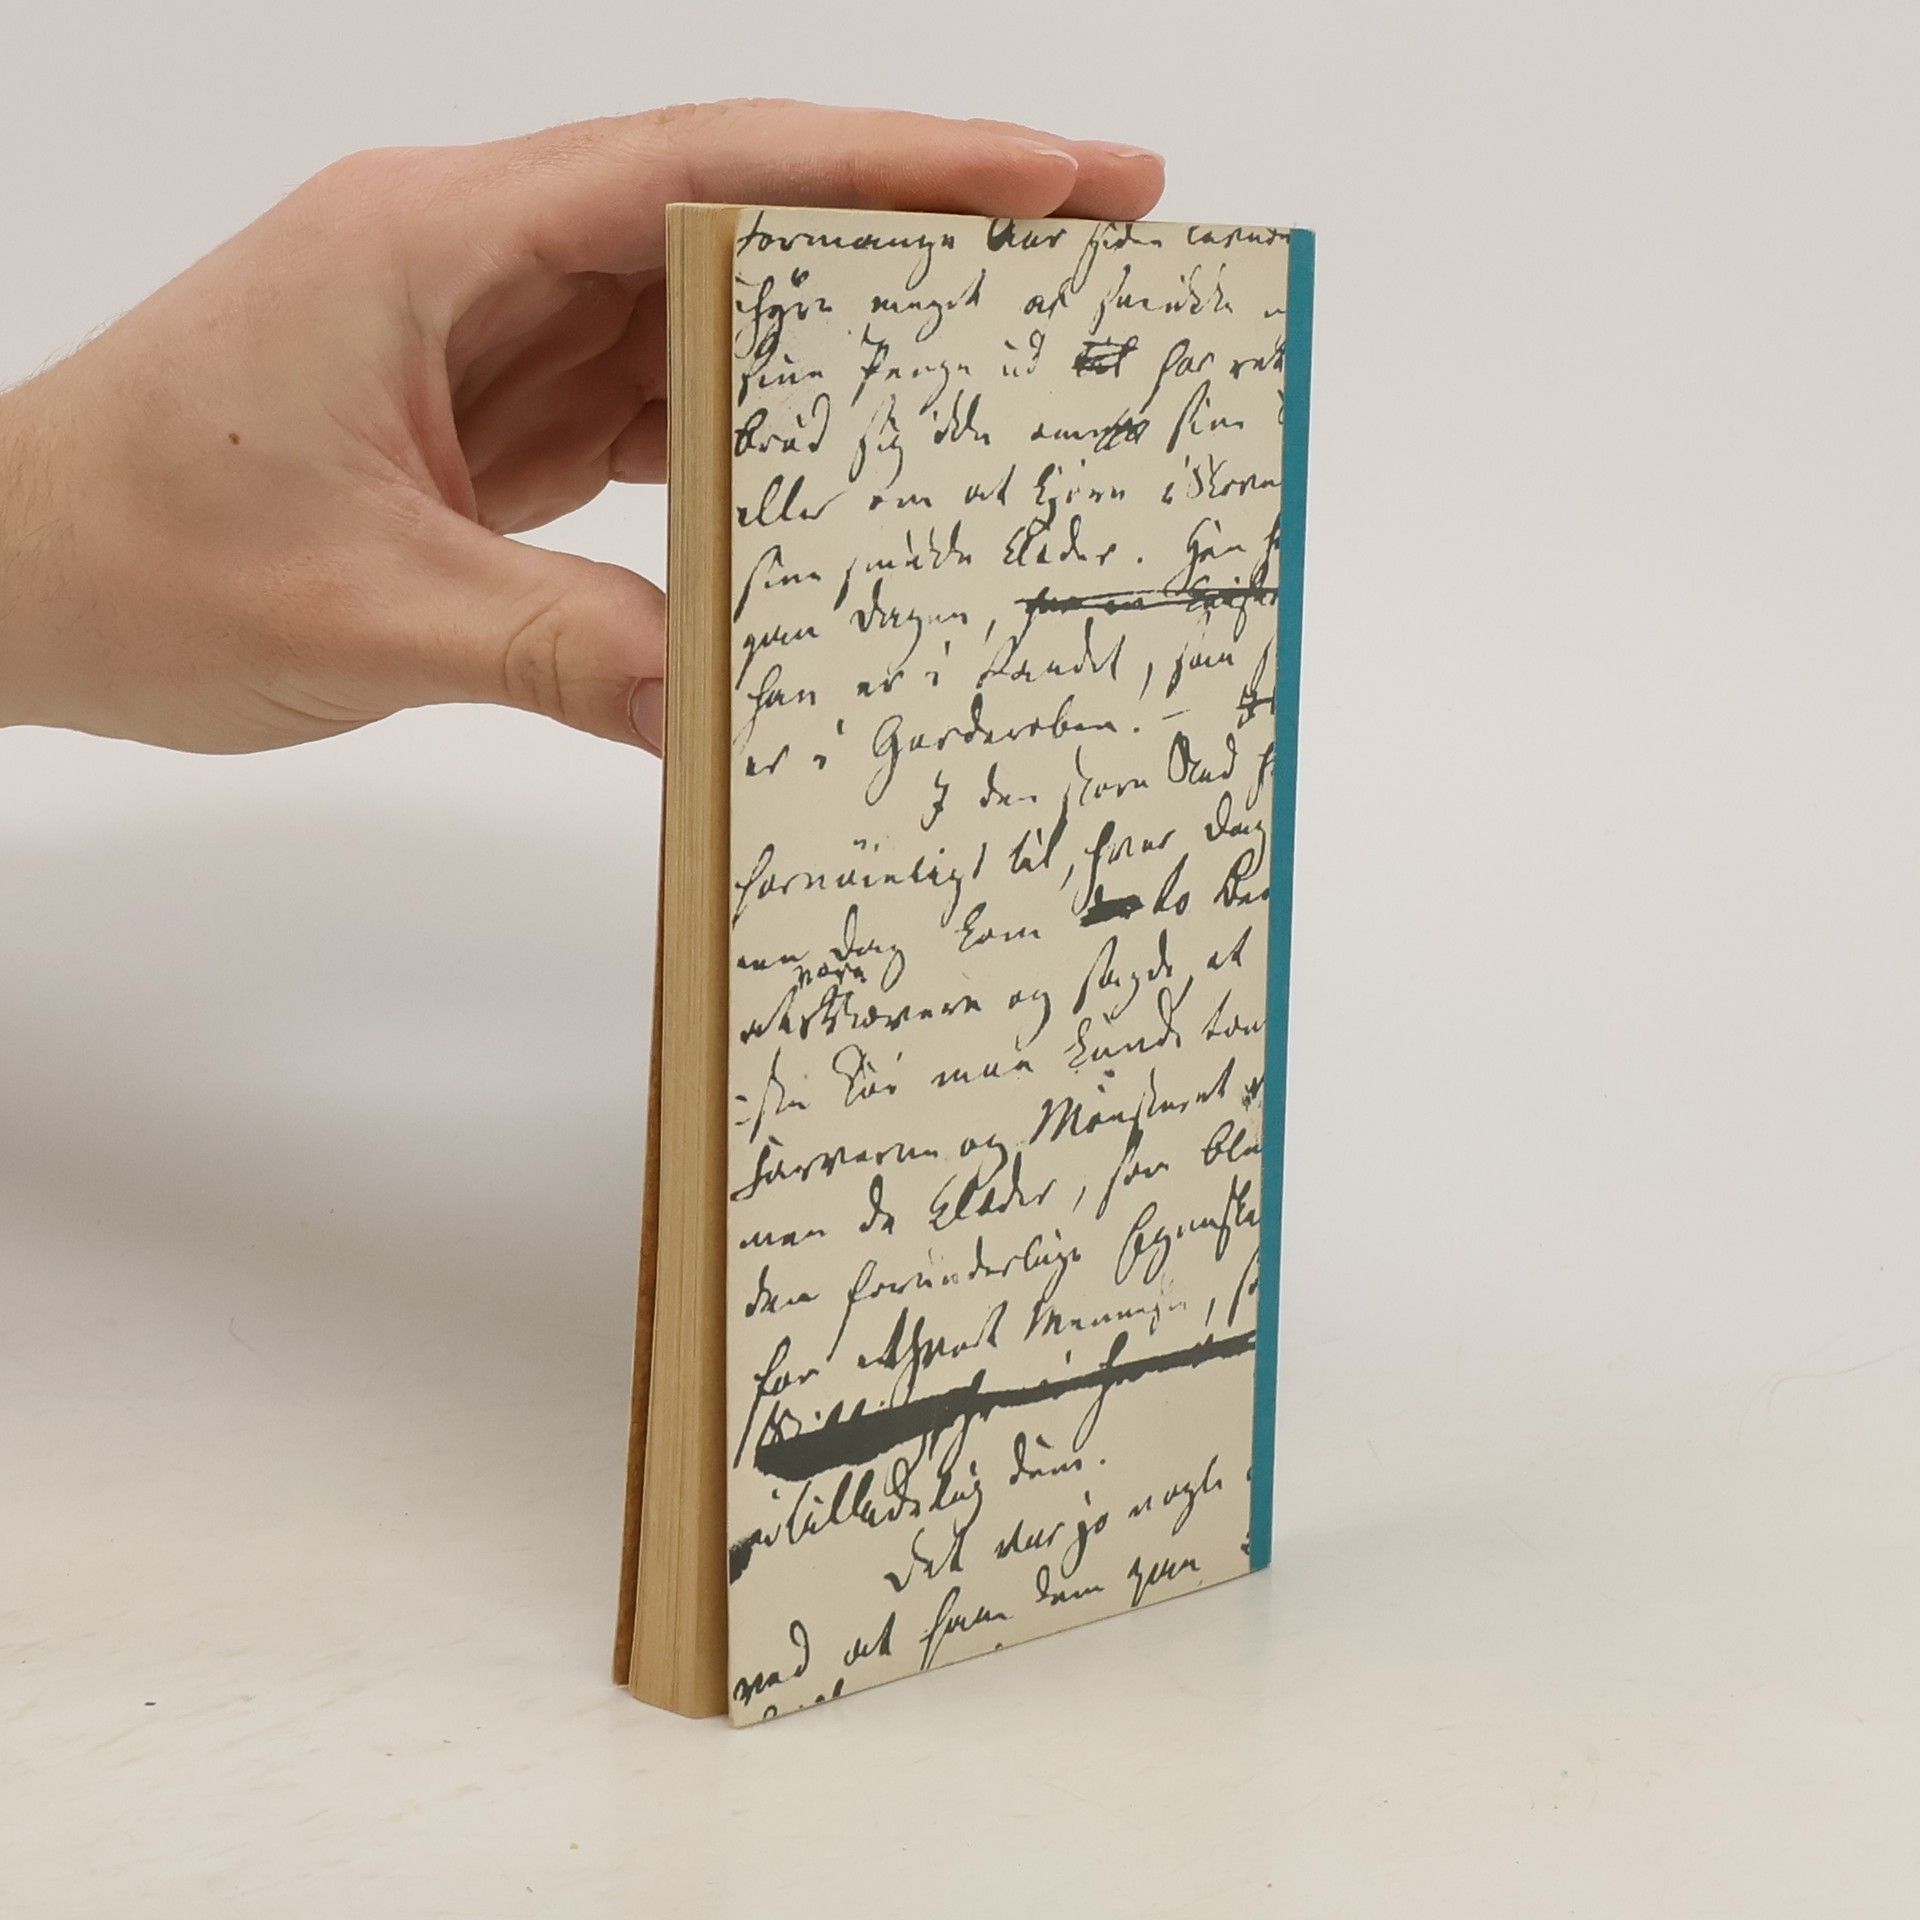 formange Aar siden levede
uhyre meget af smukke
sine Penge ud til for ret
brød sig ikke om sine
eller om at kjøre i Skove
sine smukke Klæder. Han
paa Dagen,
han er i Raadet, saa
er i Garderoben! –
I den store Stad
fornøieligt til, hver Dag
een Dag kom to Bed
at være Vævere og sagde, at
ste Tøi man kunde tæn
Farverne og Mønsteret
men de Klæder, som ble
den forunderlige Egenska
for ethvert Menneske, s
utilladelig dum.
Det var jo nogle
ved at have dem paa